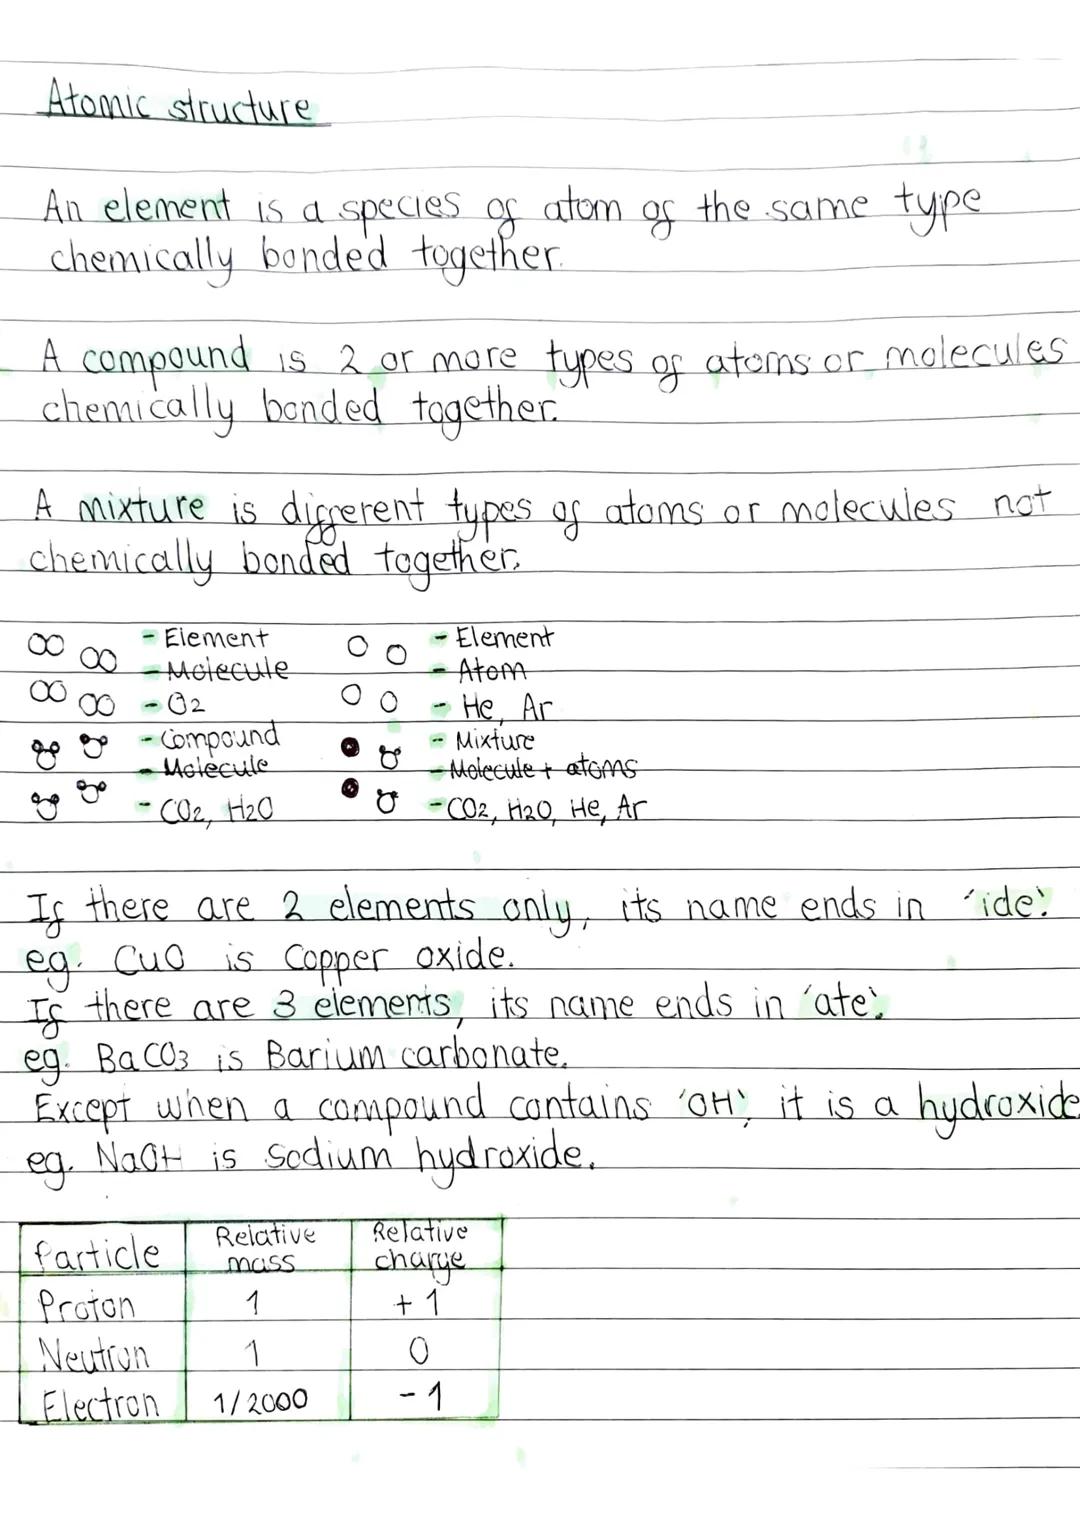 Atomic structure
An element is a species of atom of the same type
chemically bonded together.
A compound is 2 or more types of atoms or molecules
chemically bonded together.
A mixture is different types of atoms or molecules not
chemically bonded together.
- Element - Element
- Molecule - Atom
- O2 - He, Ar
- Compound - Mixture
- Molecule - Molecule + atoms
- CO2, H2O - CO2, H2O, He, Ar
If there are 2 elements only, its name ends in 'ide'.
eg. CuO is Copper oxide.
If there are 3 elements, its name ends in 'ate'.
eg. BaCO3 is Barium carbonate.
Except when a compound contains 'OH', it is a hydroxide
eg. NaOH is Sodium hydroxide.
Particle Relative mass Relative charge
Proton 1 +1
Neutron 1 0
Electron 1/2000 -1